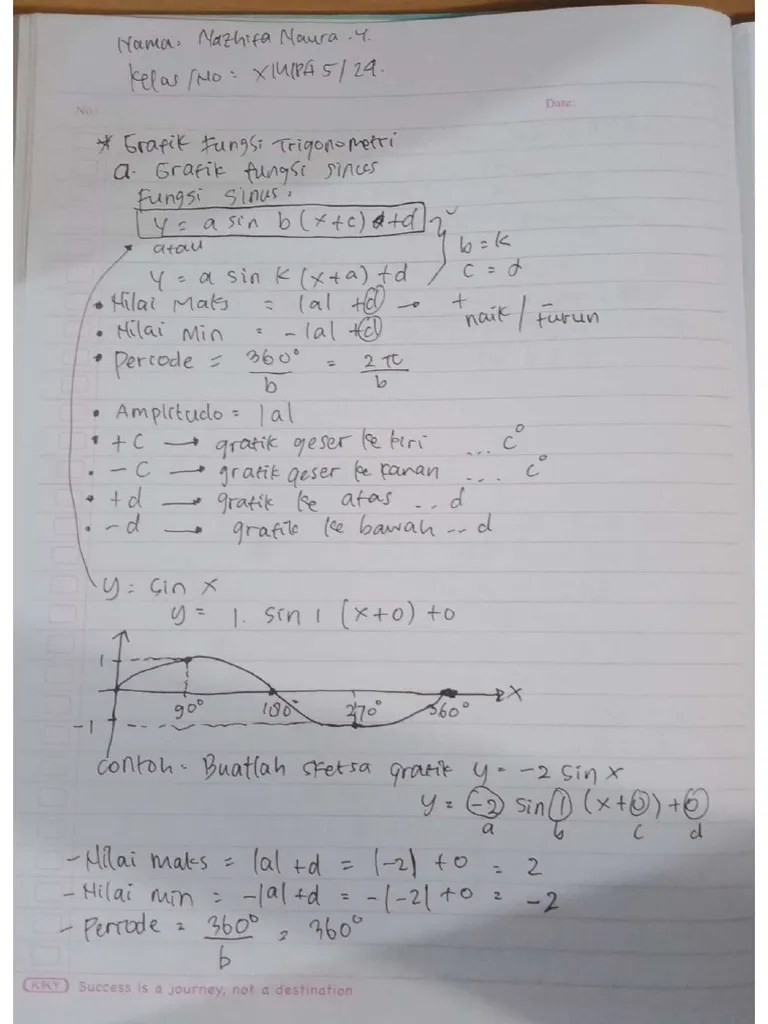 Nama: Nazhifa Naura .Y.
Kelas/No: XI MIPA 5/29.
No:
Date:
* Grafik Fungsi Trigonometri
a. Grafik fungsi sinus
Fungsi sinus:
y = a sin b (x+c) +d
atau
b = k
y = a sin k (x+a) + d
c = d
• Nilai Maks = |a| + d → + naik / - turun
• Nilai Min = -|a| + d
• Periode = 360° / b = 2π / b
• Amplitudo = |a|
• +C → grafik geser ke kiri ... c°
• -C → grafik geser ke kanan ... c°
• +d → grafik ke atas ... d
• -d → grafik ke bawah ... d
y = sin x
y = 1. sin 1 (x+0) +0
1
90° 180° 270° 360° x
-1
Contoh = Buatlah sketsa grafik y = -2 sin x
y = -2 sin 1 (x+0) +0
a b c d
- Nilai maks = |a| +d = |-2| +0 = 2
- Nilai min = -|a| +d = -|-2| +0 = -2
- Periode = 360° / b = 360°
KKY Success is a journey, not a destination